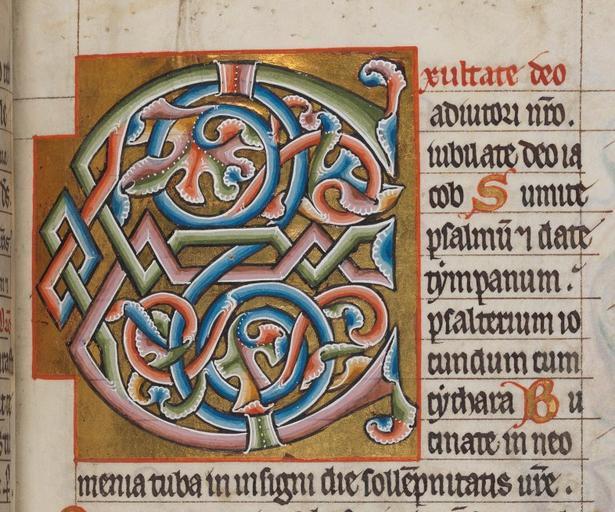 Exultate deo
adiutori nr̄o.
iubilate deo ia
cob Sumite
psalmū ⁊ date
tympanum.
psalterium io
cundum cum
cythara Bu
cinate in neo
menia tuba in insigni die sollēpnitatis ur̄e.